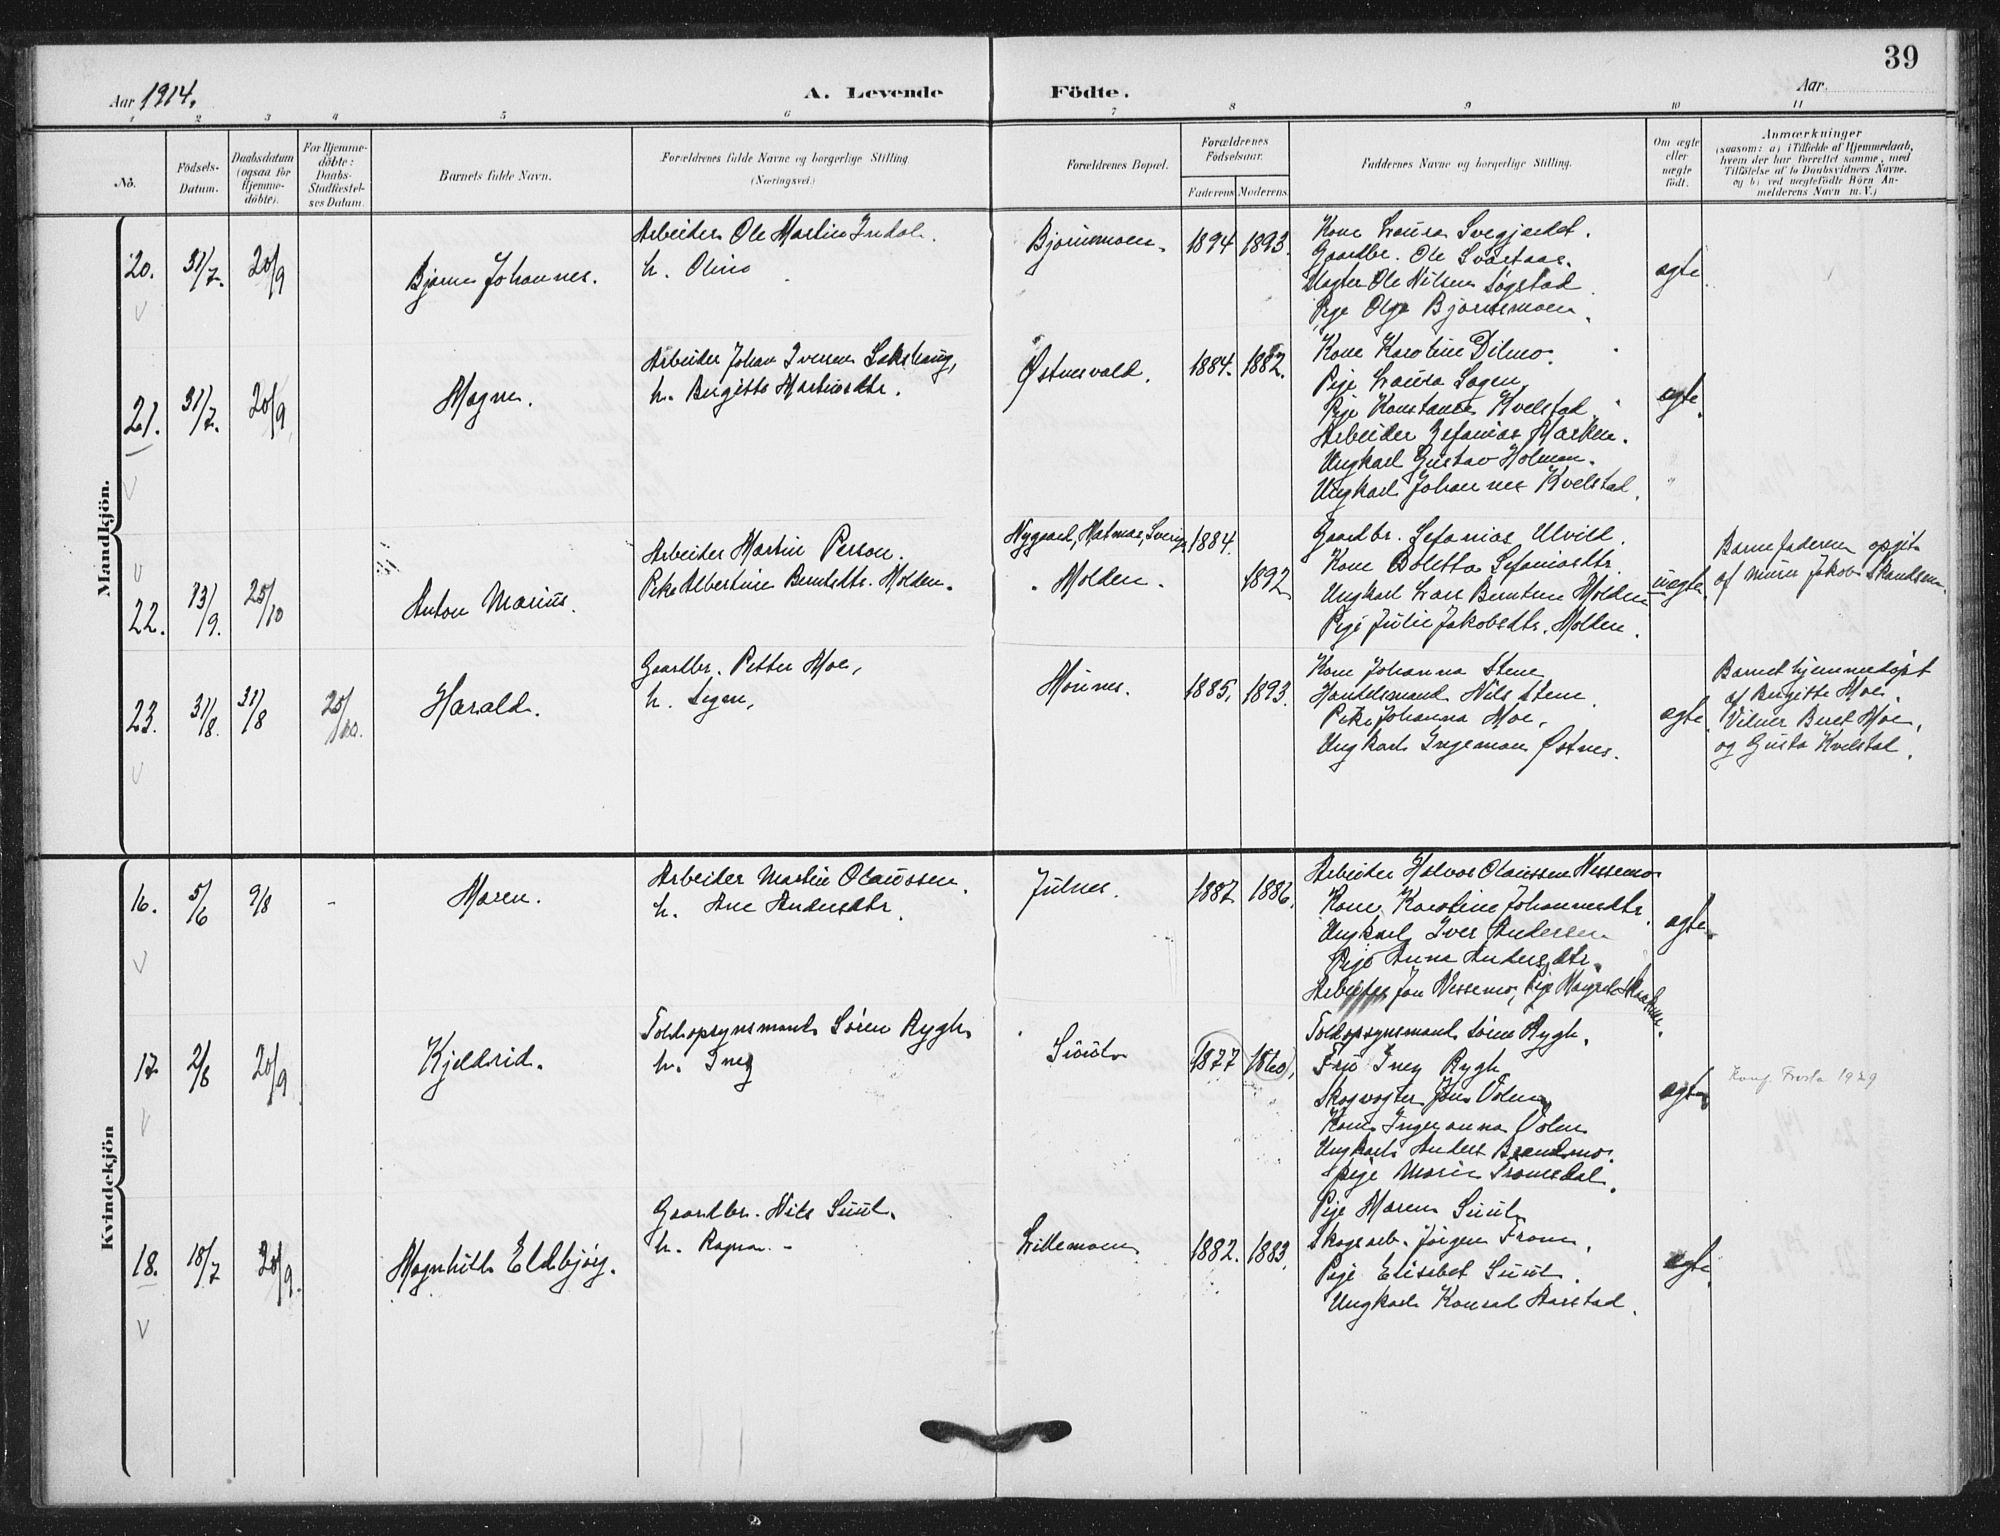 39
Aar 1914.
A. Levende Födte.
Aar
1 2 3 4 5 6 7 8 9 10 11
No.
Födsels-
Datum.
Daabsdatum
(ogsaa for
Hjemme-
döbte).
For Hjemme-
döbte:
Daabs-
Stadfæstel-
ses Datum.
Barnets fulde Navn.
Forældrenes fulde Navne og borgerlige Stilling
(Næringsvei.)
Forældrenes Bopæl.
Forældrenes
Födselsaar.
Faderens Moderens.
Faddernes Navne og borgerlige Stilling.
Om ægte
eller
uægte
födt.
Anmærkninger
(saasom: a) i Tilfælde af Hjemmedaab,
hvem der har forrettet samme, med
Tilföielse af to Daabsvidners Navne.
og b) ved uægtefödte Börn An-
melderens Navn m. V.)
Mandkjön.
20. 31/7. 20/9
Bjarne Johannes.
Arbeider Ole Martin Indal.
h. Oline
1894 1893.
Kone Laura
Gaardbr. Ole Svartaas.
Ole Nilsen Søgstad
Pige Olga Bjartnesmoen.
ægte
21. 31/7. 20/9
Magne.
Arbeider Johan Iversen Lokshaug,
h. Birgitte Martinsdtr.
Østnesvald.
1884. 1882.
Kone Karoline Dilmo.
Pige Laura
Pige Konstance Kvelstad
Arbeider Sefanias Marken.
Ungkarl Gustav Holmen.
Ungkarl Johannes Kvelstad.
ægte.
22. 13/9. 25/10
Anton Marius.
Arbeider Martin Person.
Pike Albertine Berntsdtr. Molden.
Nygaard, Matmar, Sverige
Molden.
1884.
1892
Gaardbr. Sefanias Ulvild.
Kone Boletta Sefaniasdtr.
Ungkarl Lars Berntsen Molden
Pige Julie Jakobsdtr. Molden.
uægte.
Barnefaderen opgit
af Jakob Skandsen
23. 31/8. 31/8 25/10.
Harald.
Gaardbr. Petter Moe,
h. Signe,
1885. 1893.
Kone Johanna Stene
Handelsmand Nils Stene
Pike Johanna Moe,
Ungkarl Ingeman Østnes.
ægte
Barnet hjemmedøpt
af Birgitte Moe.
Vidner Beret Moe,
og Gusta Kvelstad.
Kvindekjön
16. 5/6 9/8 -
Maren.
Arbeider Martin Olaussen.
h. Ane Andersdtr.
Julnes.
1887 1886.
Arbeider Halvor Olaussen Nessemo
Kone Karoline Johannesdtr.
Ungkarl Iver Andersen
Pige Anna Andersdtr.
Arbeider Jon Nessemo, Pige
ægte.
17 2/8 20/9
Kjeldrid.
Toldopsynsmand Søren Rygh
h. Iney
Suul
1877 1860,
Toldopsynsmand Søren Rygh.
Fru Iney Rygh
Skogvogter Jon Volen
Kone Ingeranna Volen
Ungkarl Anders Brendmo.
Pige Marie Tromsdal.
ægte
Konf. Frosta 1929
18. 18/7 20/9.
Magnhild Eldbjørg.
Gaardbr. Nils Suul.
h. Ragna. -
Lillemoen
1882. 1883.
Pige Maren Suul
Skogsarb. Jørgen From.
Pige Elisabet Suul.
Ungkarl Konrad Aarstad.
ægte.